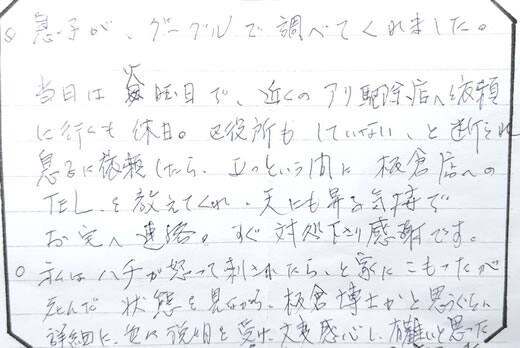 息子が、グーグルで調べてくれました。
当日は火曜日で、近くのアリ駆除店へ依頼
に行くも休日。区役所もしていない、と断られ
息子に依頼したら、立っという間に板倉店への
TEL.を教えてくれ、天にも昇る気持で
お宅へ連絡。すぐ対処下さり感謝です。
○ 私はハチが怒って刺されたら、と家にこもったが
死んだ状態を見ながら、板倉博士かと思うぐらい
詳細に、説明を受け、大変感心し、有難いと思った